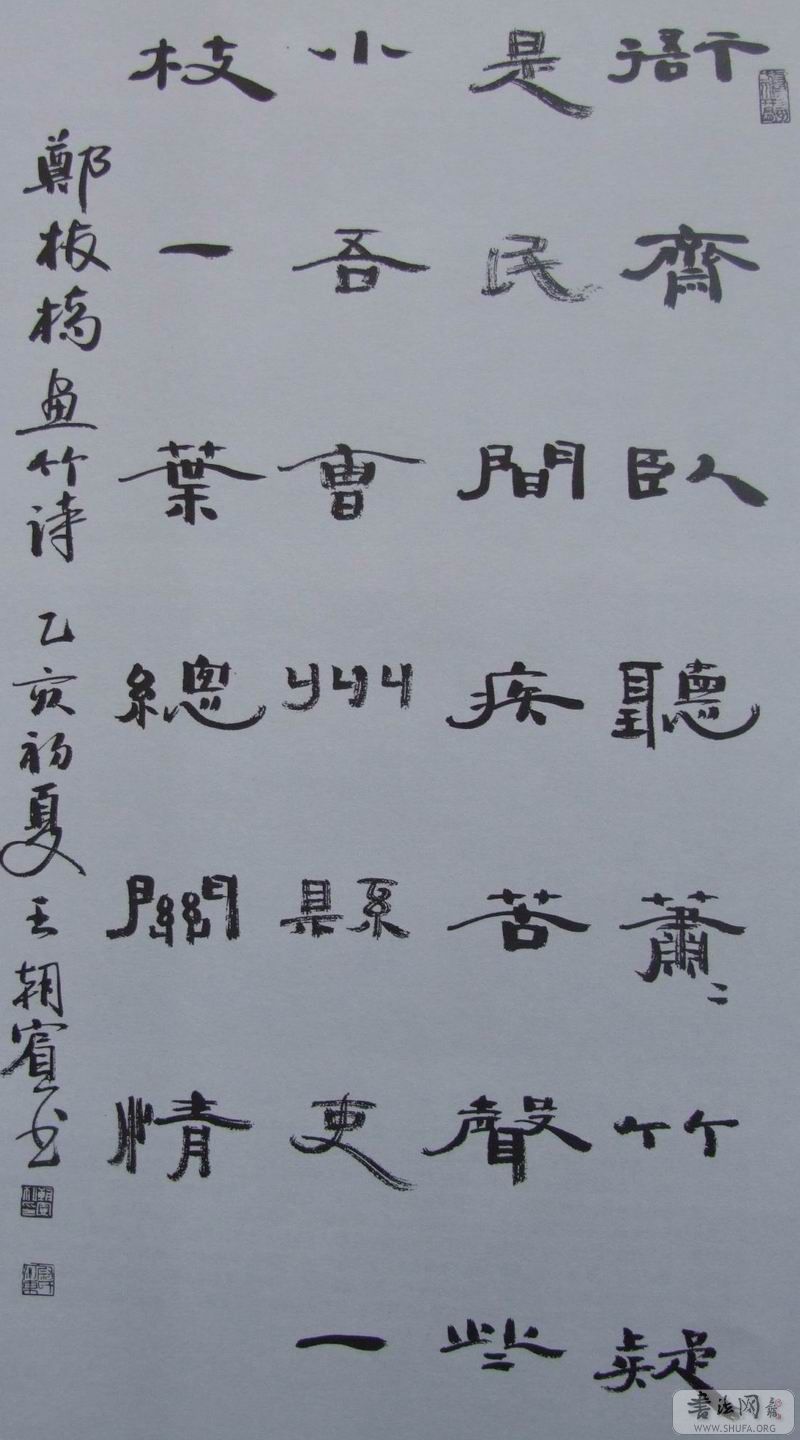 衙齋臥聽蕭々竹疑
是民間疾苦聲些
小吾曹州縣吏一
枝一葉總關情
鄭板橋畫竹詩 乙亥初夏王朝賓书
書法网
WWW.SHUFA.ORG